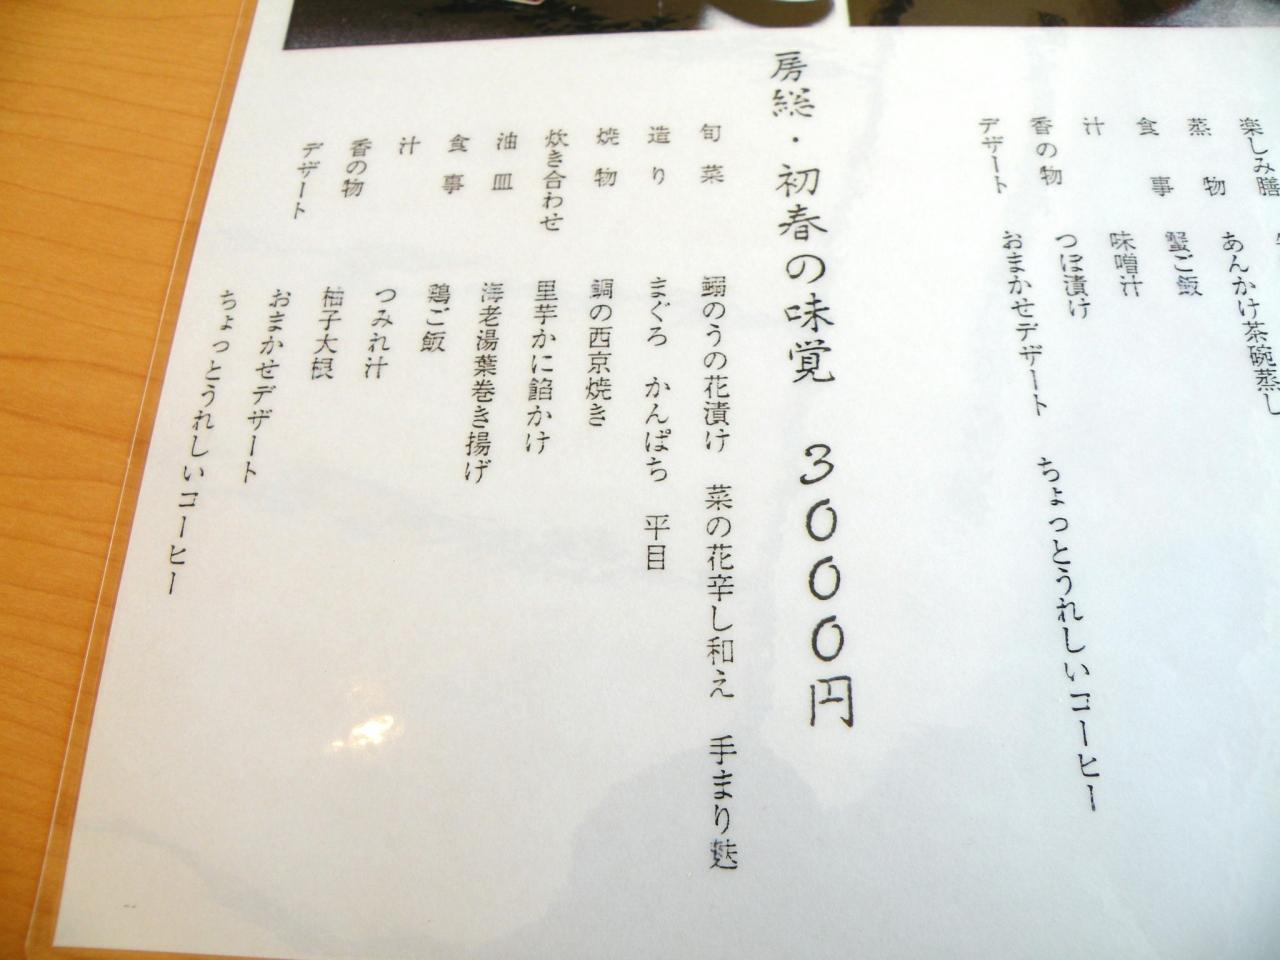 楽しみ膳
蒸物 あんかけ茶碗蒸し
食事 蟹ご飯
汁 味噌汁
香の物 つぼ漬け
デザート おまかせデザート ちょっとうれしいコーヒー
房総・初春の味覚 3000円
旬菜 鰯のうの花漬け 菜の花辛し和え 手まり麩
造り まぐろ かんぱち 平目
焼物 鯛の西京焼き
炊き合わせ 里芋かに餡かけ
油皿 海老湯葉巻き揚げ
食事 鶏ご飯
汁 つみれ汁
香の物 柚子大根
デザート おまかせデザート
ちょっとうれしいコーヒー